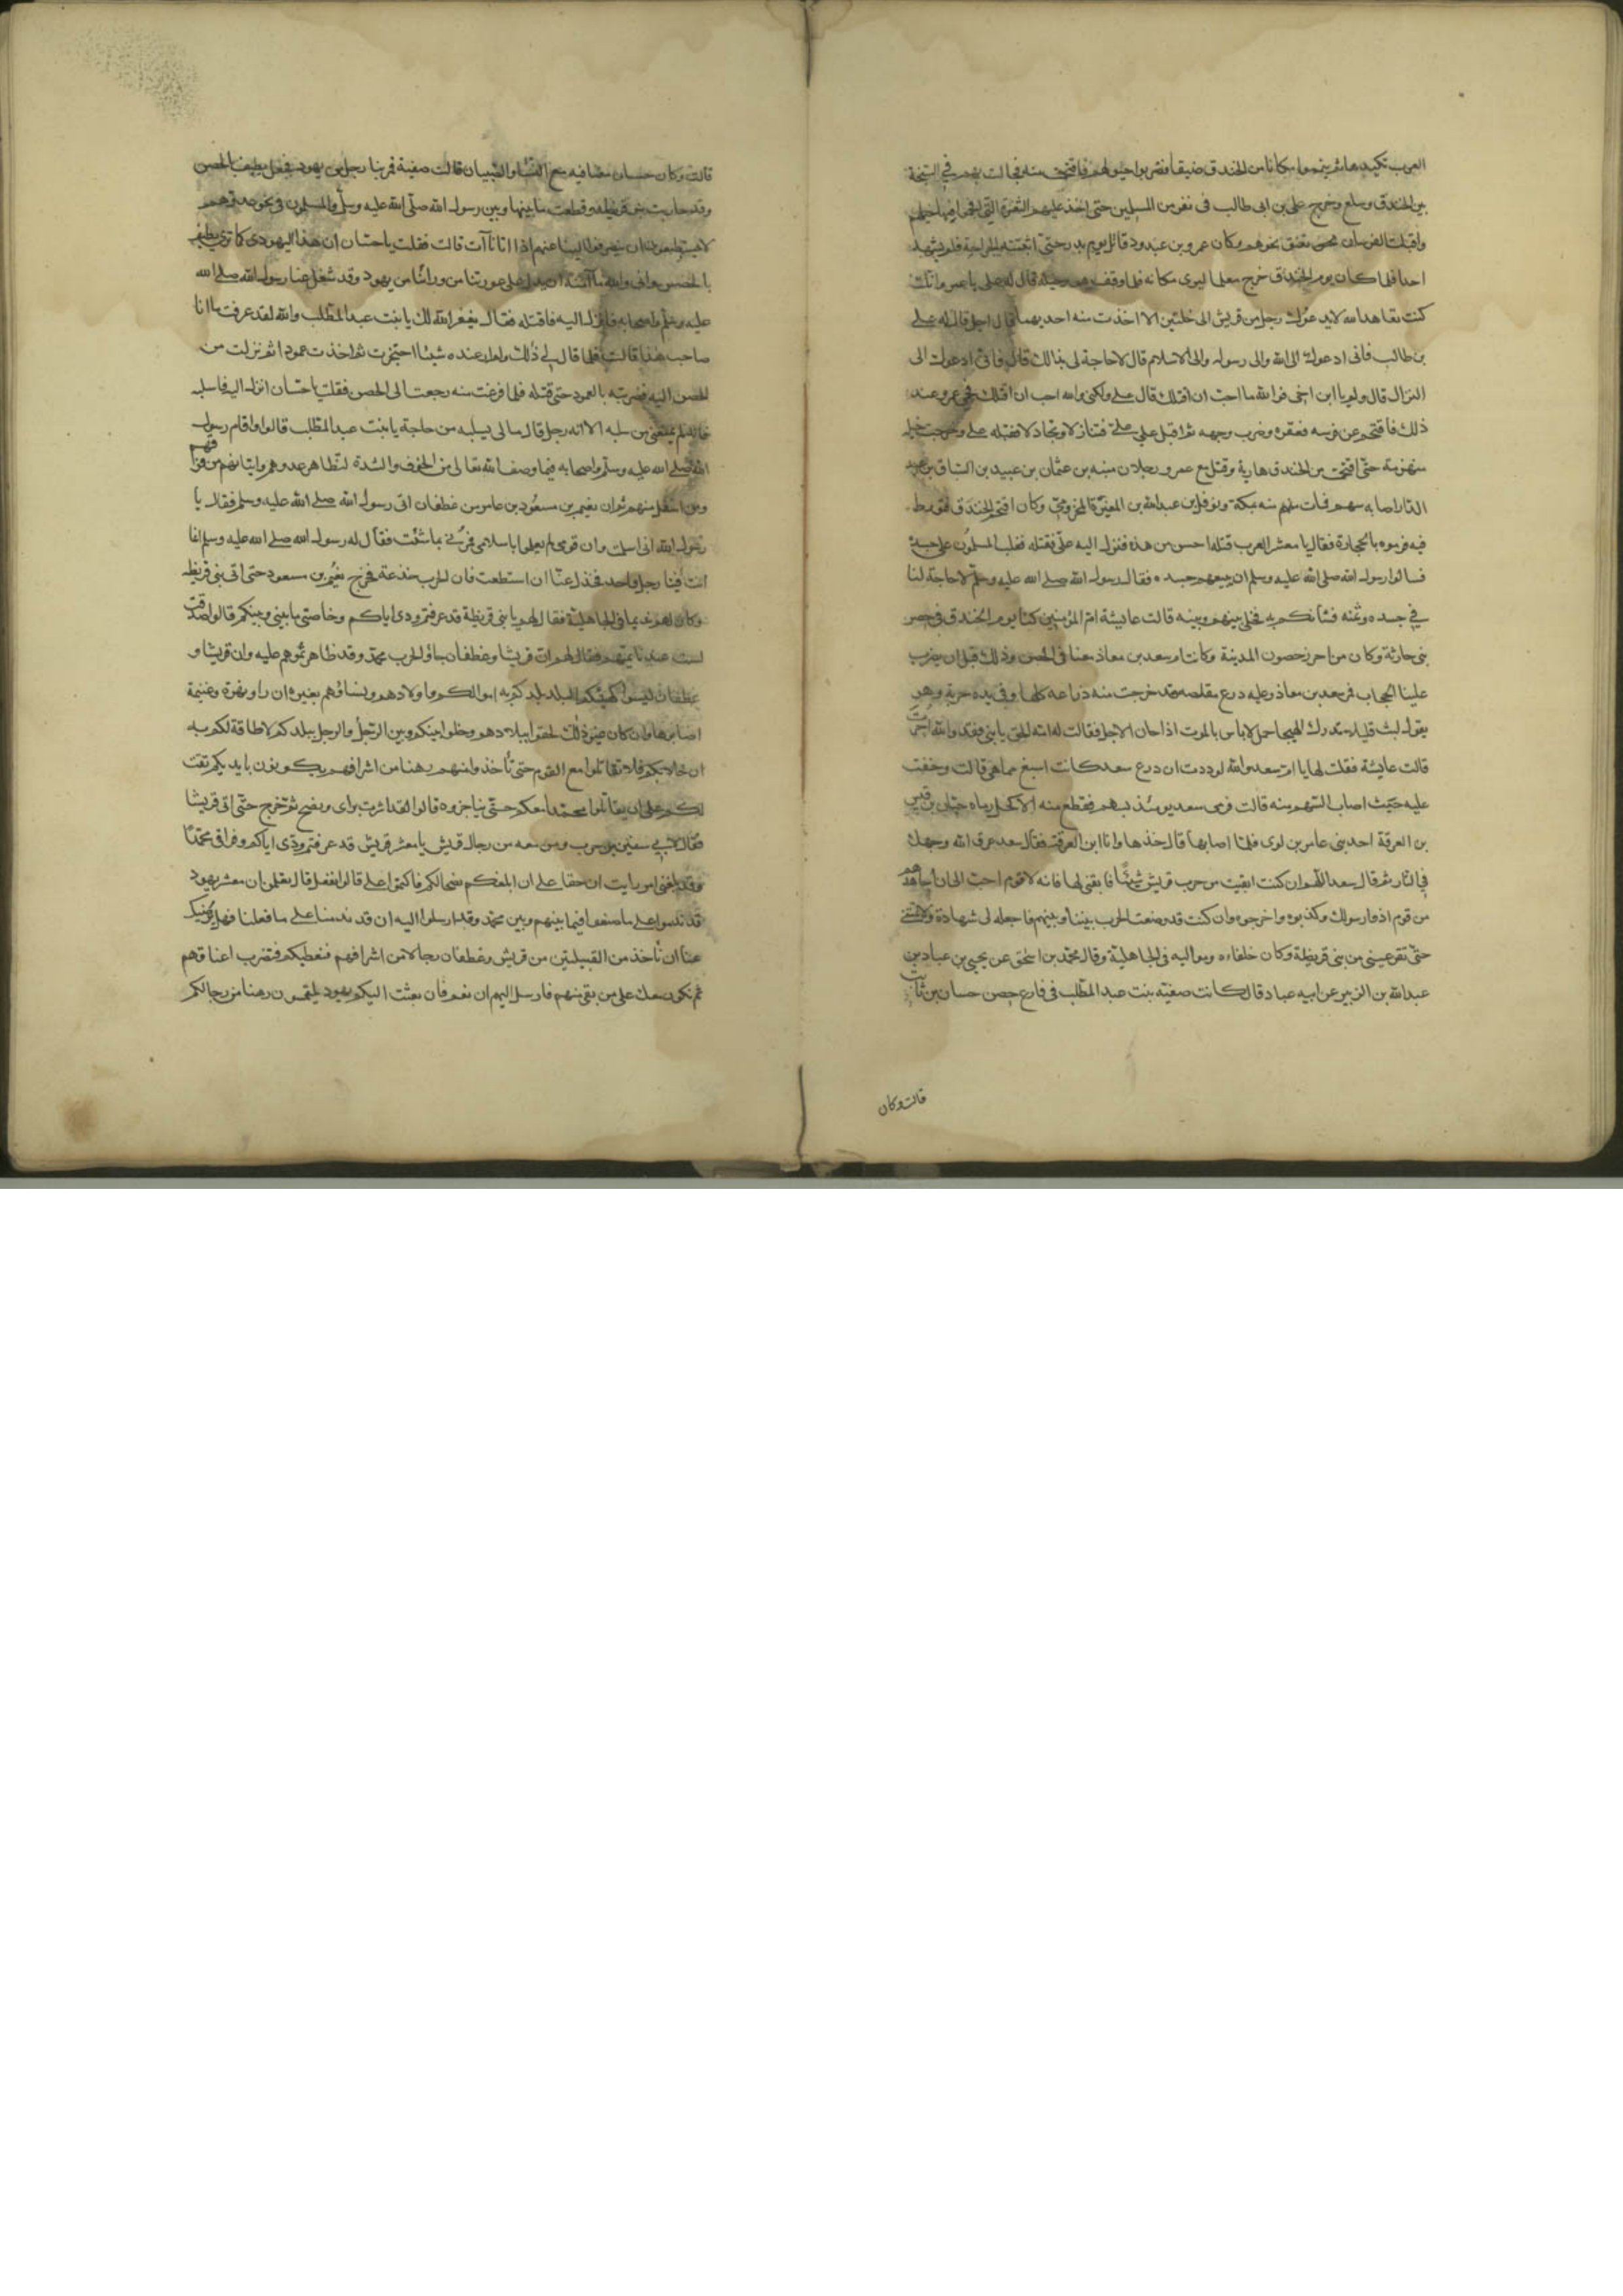 العرب تكيدها ثم تيمموا مكانا من الخندق ضيقا فضربوا خيولهم فاقتحمت منه فجالت بهم في السبخة
بين الخندق وسلع وخرج علي بن ابى طالب فى نفر من المسلمين حتى اخذ عليهم الثغرة التي اقحموا منها خيلهم
واقبلت الفرسان نحوهم تعنق نحوهم وكان عمرو بن عبدود قاتل يوم بدر حتى اثبتته الجراحة فلم يشهد
احدا فلما كان يوم الخندق خرج معلما ليرى مكانه فلما وقف هو وخيله قال له على يا عمرو انك
كنت تعاهد الله لا يدعوك رجل من قريش الى خلتين الا اخذت منه احديهما قال اجل قال له على
بن طالب فانى ادعوك الى الله والى رسوله والى الاسلام قال لا حاجة لى بذالك قال فانى ادعوك الى
النزال قال ولم يا ابن اخى فوالله ما احب ان اقتلك قال على ولكنى والله احب ان اقتلك فحمى عمرو عند
ذلك فاقتحم عن فرسه فعقره وضرب وجهه ثم اقبل على على فتنازلا وتجاولا فقتله على وخرجت خيله
منهزمة حتى اقتحمت من الخندق هاربة وقتل مع عمرو رجلان منبه بن عثمان بن عبيد بن السباق بن عبد
الدار اصابه سهم فمات منه بمكة ونوفل بن عبدالله بن المغيرة المخزومي وكان اقتحم الخندق فتورط
فيه فرموه بالحجارة فقال يا معشر العرب قتلة احسن من هذه فنزل اليه على فقتله فغلب المسلمون على جسده
فسالوا رسول الله صلى الله عليه وسلم ان يبيعهم جسده فقال رسول الله صلى الله عليه وسلم لا حاجة لنا
في جسده وثمنه فشانكم به فخلى بينهم وبينه قالت عايشة ام المؤمنين كنا يوم الخندق فى حصن
بنى حارثة وكان من احرز حصون المدينة وكانت ام سعد بن معاذ معنا فى الحصن وذلك قبل ان يضرب
علينا الحجاب فمر سعد بن معاذ وعليه درع مقلصة قد خرجت منه ذراعه كلها وفى يده حربة وهو
يقول لبث قليلا يدرك الهيجا حمل لا باس بالموت اذا حان الاجل فقالت له امه الحق يا بنى فقد والله اخرت
قالت عايشة فقلت لها يا ام سعد والله لوددت ان درع سعد كانت اسبغ مما هى قالت وخفت
عليه حيث اصاب السهم منه قالت فرمى سعد يومئذ بسهم فقطع منه الاكحل رماه حبان بن قيس
بن العرقة احد بنى عامر بن لوى فلما اصابها قال خذها وانا ابن العرقة فقال سعد عرق الله وجهك
في النار ثم قال سعد اللهم ان كنت ابقيت من حرب قريش شيئا فابقنى لها فانه لا قوم احب الى ان اجاهدهم
من قوم اذوا رسولك وكذبوه واخرجوه وان كنت قد وضعت الحرب بيننا وبينهم فاجعله لى شهادة ولا تمتنى
حتى تقر عينى من بنى قريظة وكان خلفاءه ومواليه فى الجاهلية وقال محمد بن اسحق عن يحيى بن عباد بن
عبدالله بن الزبير عن ابيه عباد قال كانت صفية بنت عبدالمطلب فى فارع حصن حسان بن ثابت
قالت وكان
قالت وكان حسان معنا فيه مع النساء والصبيان قالت صفية فمر بنا رجل من يهود فجعل يطيف بالحصن
وقد حاربت بنو قريظة وقطعت ما بينها وبين رسول الله صلى الله عليه وسلم والمسلمون فى نحور عدوهم
لا يستطيعون ان ينصرفوا الينا عنهم اذا اتانا آت قالت فقلت يا حسان ان هذا اليهودى كما ترى يطيف
بالحصن وانى والله ما آمنه ان يدل على عورتنا من وراءنا من يهود وقد شغل عنا رسول الله صلى الله
عليه وسلم واصحابه فانزل اليه فاقتله فقال يغفر الله لك يا بنت عبدالمطلب والله لقد عرفت ما انا
صاحب هذا قالت فلما قال لي ذلك ولم ار عنده شيئا احتجزت ثم اخذت عمودا ثم نزلت من
الحصن اليه فضربته بالعمود حتى قتلته فلما فرغت منه رجعت الى الحصن فقلت يا حسان انزل اليه فاسلبه
فانه لم يمنعنى من سلبه الا انه رجل قال مالى بسلبه من حاجة يا بنت عبدالمطلب قالوا واقام رسول
الله صلى الله عليه وسلم واصحابه فيما وصف الله تعالى من الخوف والشدة لتظاهر عدوهم وايتانهم من فوقهم
ومن اسفل منهم ثم ان نعيم بن مسعود بن عامر من غطفان اتى رسول الله صلى الله عليه وسلم فقال يا
رسول الله انى اسلمت وان قومى لم يعلموا باسلامى فمرنى بما شئت فقال له رسول الله صلى الله عليه وسلم انما
انت فينا رجل واحد فخذل عنا ان استطعت فان الحرب خدعة فخرج نعيم بن مسعود حتى اتى بنى قريظة
وكان لهم نديما فى الجاهلية فقال لهم يا بنى قريظة قد عرفتم ودى اياكم وخاصتى ما بينى وبينكم قالوا صدقت
لست عندنا بمتهم فقال لهم ان قريشا وغطفان جاؤا لحرب محمد وقد ظاهرتموهم عليه وان قريشا و
غطفان ليسوا كهيئتكم البلد بلدكم به اموالكم واولادهم ونساؤهم بغيره ان راوا نهزة وغنيمة
اصابوها وان كان غير ذلك لحقوا ببلادهم وخلوا بينكم وبين الرجل والرجل ببلدكم لا طاقة لكم به
ان خلا بكم فلا تقاتلوا مع القوم حتى تأخذوا منهم رهنا من اشرافهم يكونون بايديكم ثقة
لكم على ان يقاتلوا معكم محمدا حتى يناجزوه قالوا لقد اشرت براى ونصح ثم خرج حتى اتى قريشا
فقال لابي سفين بن حرب ومن معه من رجال قريش يا معشر قريش قد عرفتم ودى اياكم وفراقى محمدا
وقد بلغنى امر رايت ان حقا على ان ابلغكم نصحا لكم فاكتموا على قالوا نفعل قال تعلمون ان معشر يهود
قد ندموا على ما صنعوا فيما بينهم وبين محمد وقد ارسلوا اليه ان قد ندمنا على ما فعلنا فهل يرضيك
عنا ان نأخذ من القبيلتين من قريش وغطفان رجالا من اشرافهم فنعطيكم فتضرب اعناقهم
ثم نكون معك على من بقى منهم فارسل اليهم ان نعم فان بعثت اليكم يهود يلتمسون رهنا من رجالكم